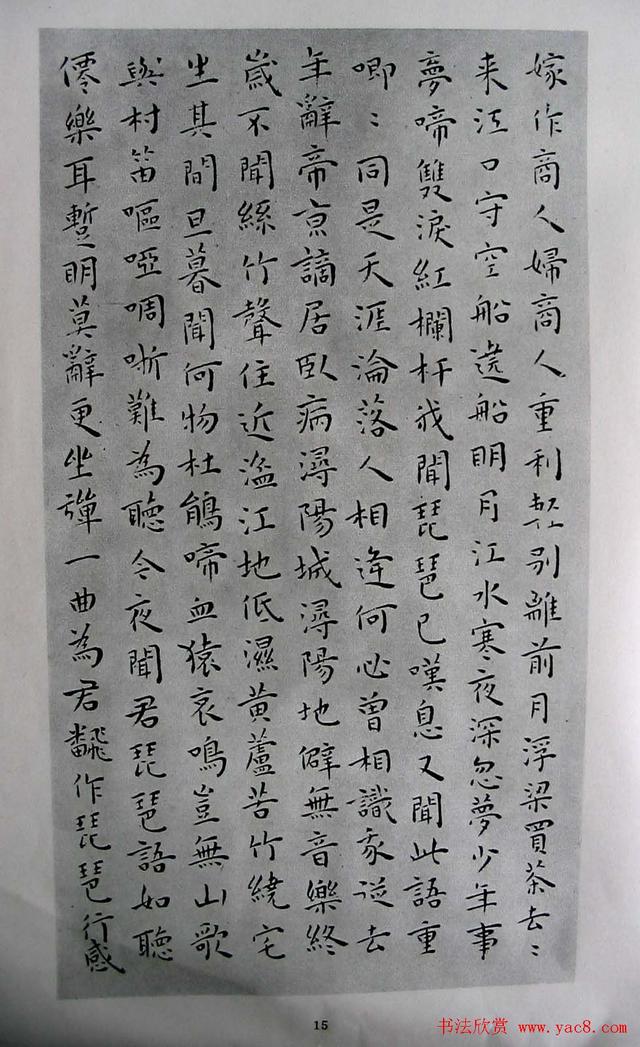 嫁作商人婦商人重利輕別離前月浮梁買茶去〻
来江口守空船遶船明月江水寒夜深忽夢少年事
夢啼雙淚紅欄杆我聞琵琶已嘆息又聞此語重
唧〻同是天涯淪落人相逢何必曾相識我從去
年辭帝京謫居臥病潯陽城潯陽地僻無音樂終
歲不聞絲竹聲住近湓江地低濕黃蘆苦竹繞宅
生其間旦暮聞何物杜鵑啼血猿哀鳴豈無山歌
與村笛嘔啞啁哳難為聽今夜聞君琵琶語如聽
僊樂耳蹔明莫辭更坐彈一曲為君飜作琵琶行感
15
书法欣赏 www.yac8.com